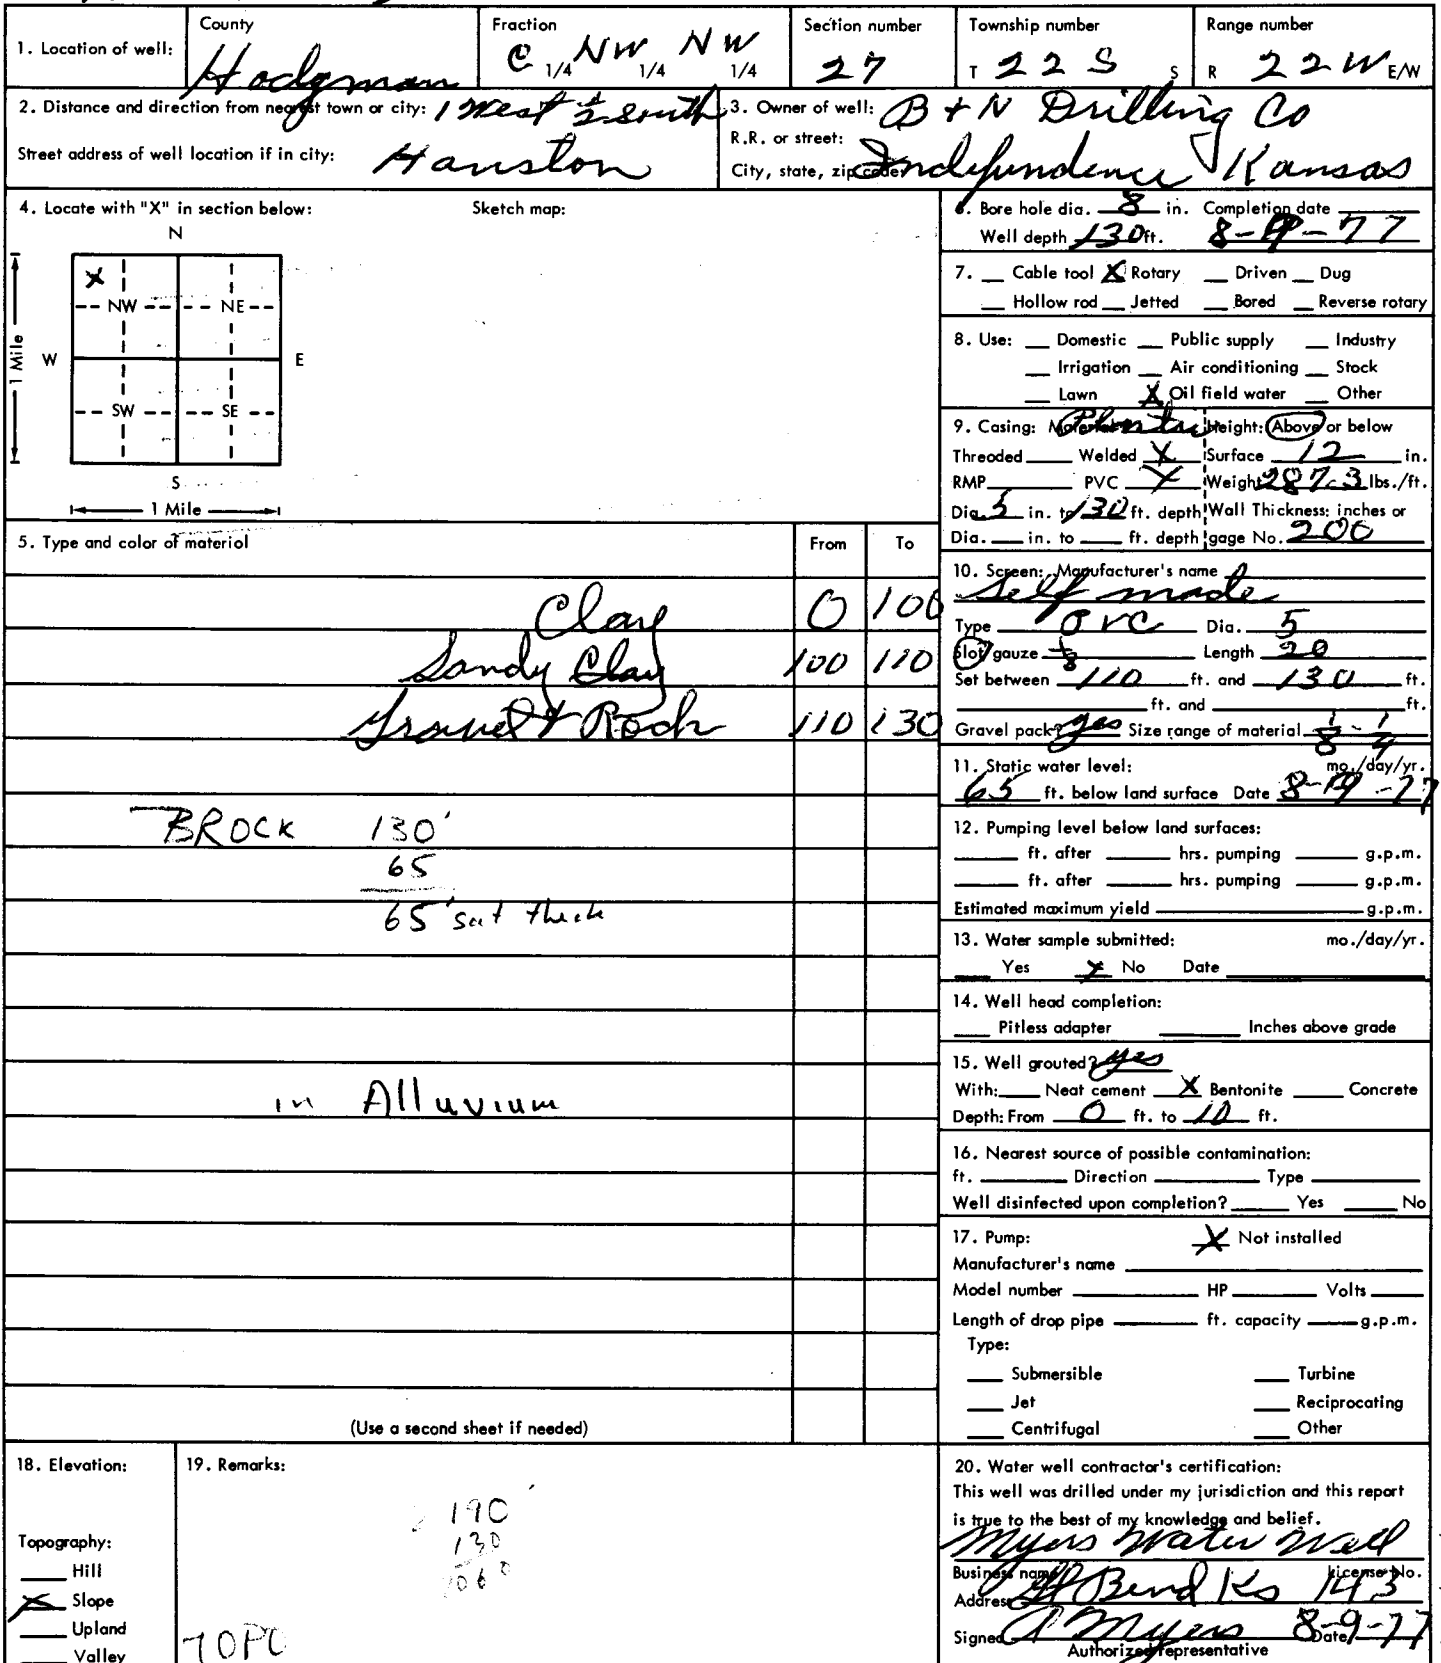 1. Location of well: County Hodgman Fraction C 1/4 NW 1/4 NW 1/4 Section number 27 Township number T 22 S S Range number R 22 W E/W
2. Distance and direction from nearest town or city: 1 West ½ South
Street address of well location if in city: Hanston
3. Owner of well: B + N Drilling Co
R.R. or street:
City, state, zip code: Independence Kansas
4. Locate with "X" in section below: Sketch map:
N
X
NW NE
W E
1 Mile
SW SE
S
1 Mile
5. Type and color of material From To
Clay 0 100
Sandy Clay 100 110
Gravel & Rock 110 130
BROCK 130'
65
65' sat thick
in Alluvium
(Use a second sheet if needed)
6. Bore hole dia. 8 in. Completion date
Well depth 130 ft. 8-9-77
7. Cable tool X Rotary Driven Dug
Hollow rod Jetted Bored Reverse rotary
8. Use: Domestic Public supply Industry
Irrigation Air conditioning Stock
Lawn X Oil field water Other
9. Casing: Material Plastic Height: Above or below
Threaded Welded X Surface 12 in.
RMP PVC X Weight 287.3 lbs./ft.
Dia. 5 in. to 130 ft. depth Wall Thickness: inches or
Dia. in. to ft. depth gage No. 200
10. Screen: Manufacturer's name
Self made
Type PVC Dia. 5
Slot gauze 1/8 Length 20
Set between 110 ft. and 130 ft.
ft. and ft.
Gravel pack? yes Size range of material 1/8 - 1/4
11. Static water level: mo./day/yr.
65 ft. below land surface Date 8-9-77
12. Pumping level below land surfaces:
ft. after hrs. pumping g.p.m.
ft. after hrs. pumping g.p.m.
Estimated maximum yield g.p.m.
13. Water sample submitted: mo./day/yr.
Yes X No Date
14. Well head completion:
Pitless adapter Inches above grade
15. Well grouted? yes
With: Neat cement X Bentonite Concrete
Depth: From 0 ft. to 10 ft.
16. Nearest source of possible contamination:
ft. Direction Type
Well disinfected upon completion? Yes No
17. Pump: X Not installed
Manufacturer's name
Model number HP Volts
Length of drop pipe ft. capacity g.p.m.
Type:
Submersible Turbine
Jet Reciprocating
Centrifugal Other
18. Elevation:
Topography:
Hill
X Slope
Upland
Valley
19. Remarks:
190'
130
060
TOPO
20. Water well contractor's certification:
This well was drilled under my jurisdiction and this report
is true to the best of my knowledge and belief.
Myers Water Well
Business name License No.
Address Gt Bend Ks 143
Signed Myers Date 8-9-77
Authorized representative